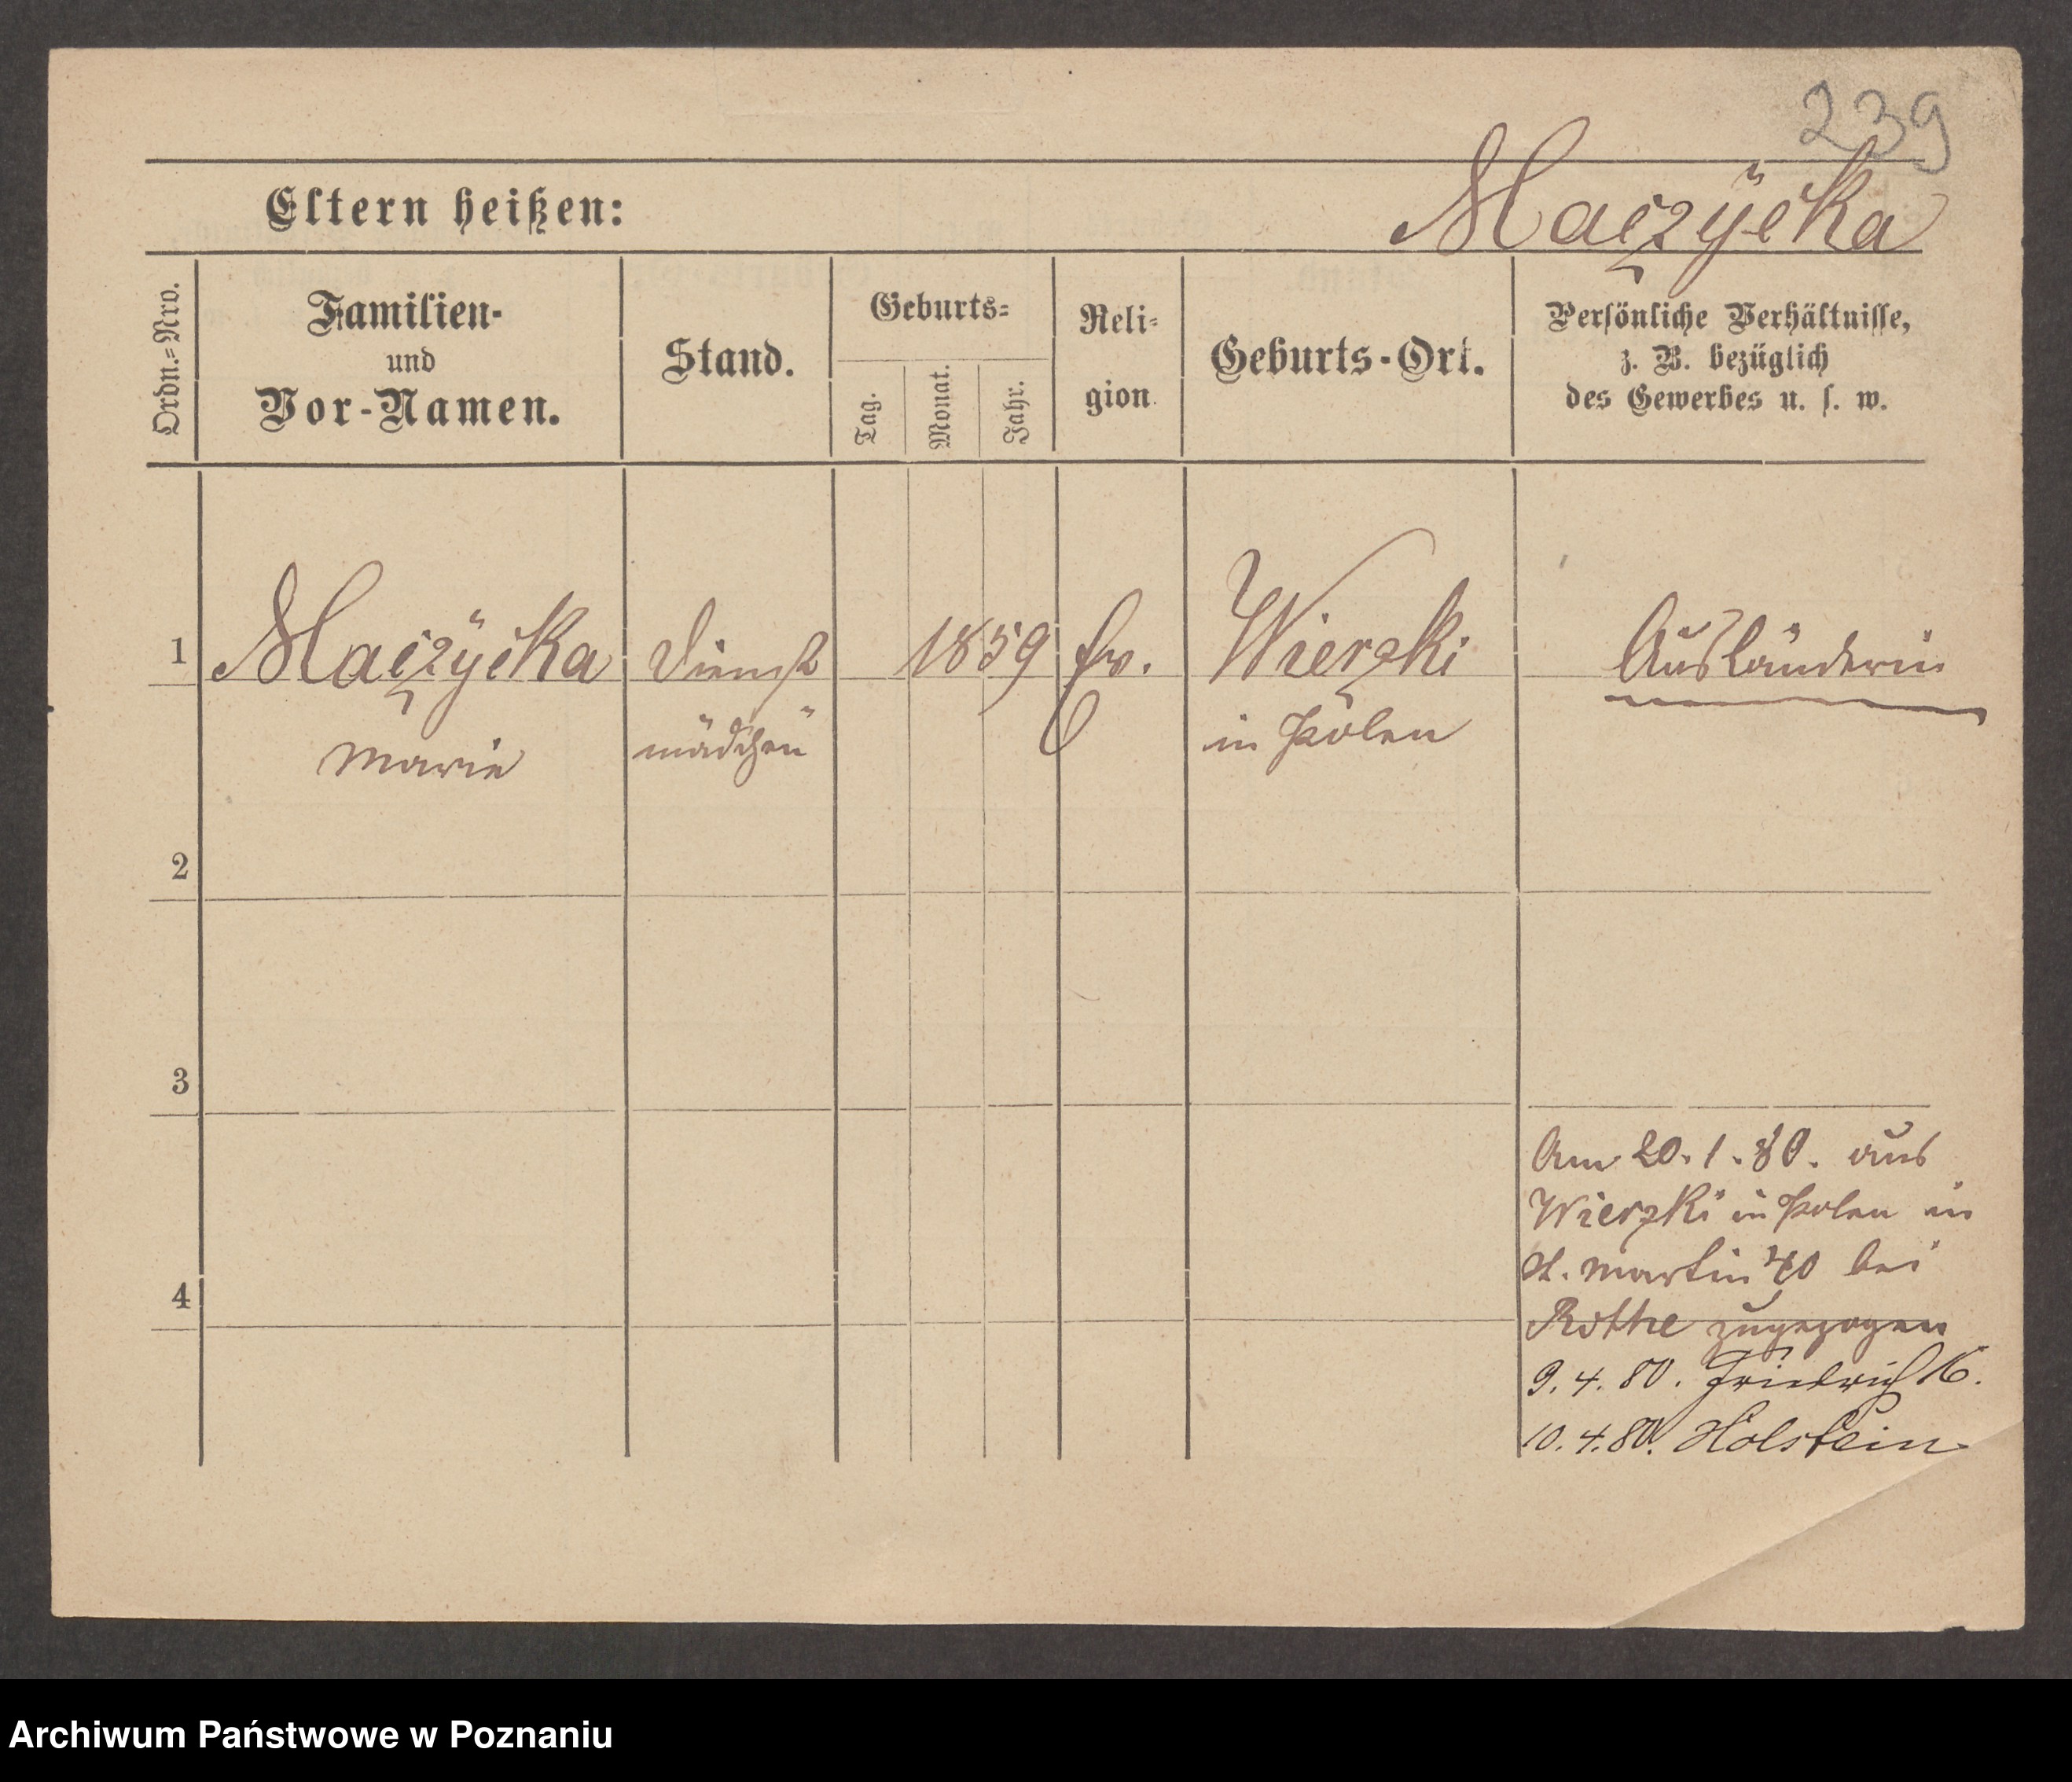 239
Eltern heißen:
Maczycka
Ordn.=Nro.
Familien-
und
Vor-Namen.
Stand.
Geburts=
Tag.
Monat.
Jahr.
Reli=
gion
Geburts-Ort.
Persönliche Verhältnisse,
z. B. bezüglich
des Gewerbes u. s. w.
1
Maczycka
Marie
Dienst
mädchen
1859
Ev.
Wierzki
in Polen
Ausländerin
2
3
4
Am 20. 1. 80. aus
Wierzki in Polen in
St. Martin 40 bei
Rothe zugezogen
9. 4. 80. Friedrich 16.
10. 4. 80. Holstein
Archiwum Państwowe w Poznaniu